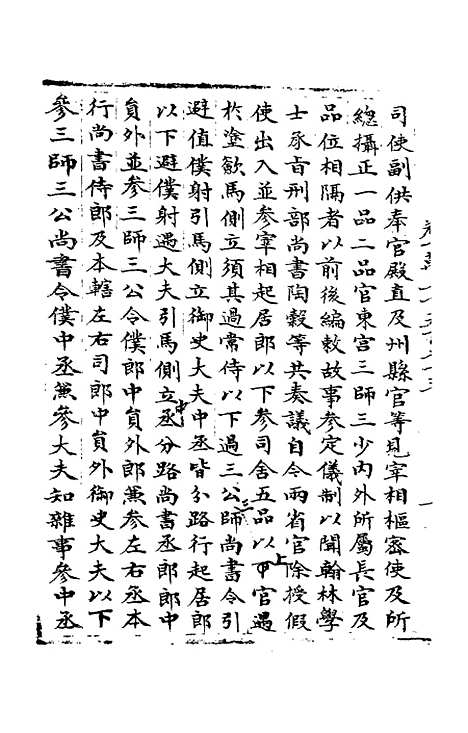 司使副供奉官殿直及州縣官等見宰相樞密使及所
總攝正一品二品官東宫三師三少内外所屬長官及
品位相隔者以前後編敕故事參定儀制以聞翰林學
士承旨刑部尚書陶穀等共奏議自今兩省官除授假
使出入並參宰相起居郎以下參司舍五品以上官遇
於塗歛馬側立須其過常侍以下遇三公三師尚書令引
避值僕射引馬側立御史大夫中丞皆分路行起居郎
以下避僕射遇大夫引馬側立中丞分路尚書丞郎郎中
員外並參三師三公令僕郎中員外郎兼參左右丞本
行尚書侍郎及本轄左右司郎中員外御史大夫以下
參三師三公尚書令僕中丞兼參大夫知雜事參中丞